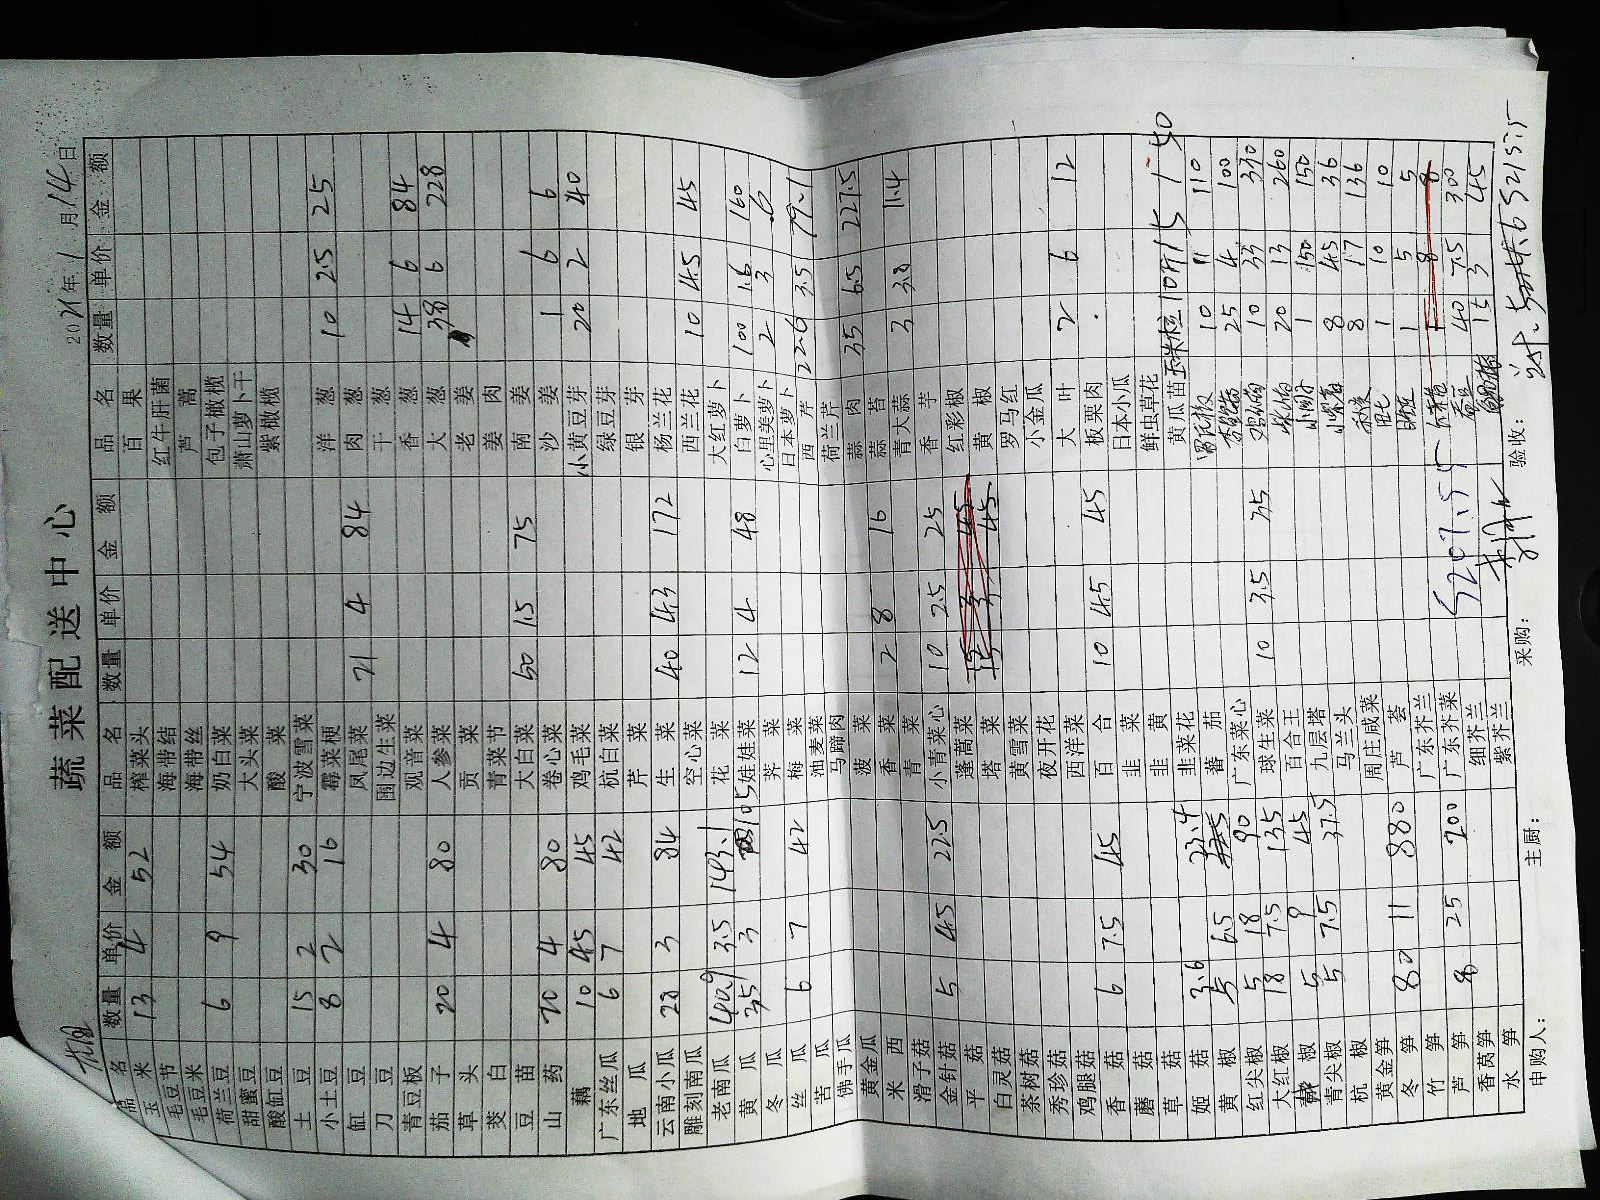 蔬菜配送中心
2021年1月14日
品名 数量 单价 金额 品名 数量 单价 金额 品名 数量 单价 金额
玉米 13 4 52 榨菜头 百果
毛豆节 海带结 红牛肝菌
毛豆米 海带丝 芦蒿
荷兰豆 6 9 54 奶白菜 包子橄榄
甜蜜豆 大头菜 萧山萝卜干
酸缸豆 酸菜 紫橄榄
土豆 15 2 30 宁波雪菜
小土豆 8 2 16 霉菜梗 洋葱 10 2.5 25
缸豆 凤尾菜 21 4 84 肉葱
刀豆 围边生菜 干葱
青豆板 观音菜 香葱 14 6 84
茄子 20 4 80 人参菜 大葱 38 6 228
草头 贡菜 老姜
茭白 青菜节 姜肉
豆苗 大白菜 50 1.5 75 南姜
山药 20 4 80 卷心菜 沙姜 1 6 6
藕 10 4.5 45 鸡毛菜 小黄豆芽 20 2 40
广东丝瓜 6 7 42 杭白菜 绿豆芽
地瓜 芹菜 银芽
云南小瓜 28 3 84 生菜 40 4.3 172 杨兰花
雕刻南瓜 空心菜 西兰花 10 4.5 45
老南瓜 40.9 3.5 143.1 花菜 大红萝卜
黄瓜 35 3 105 娃娃菜 12 4 48 白萝卜 100 1.6 160
冬瓜 荠菜 心里美萝卜 2 3 6
丝瓜 6 7 42 梅菜 日本萝卜
苦瓜 池麦菜 西芹 22.6 3.5 79.1
佛手瓜 马蹄肉 荷兰芹
黄金瓜 菠菜 蒜肉 35 6.5 227.5
米西 香菜 2 8 16 蒜苔
滑子菇 青菜 青大蒜 3 3.8 11.4
金针菇 5 4.5 22.5 小青菜心 10 2.5 25 香芋
平菇 蓬蒿菜 15 3 45 红彩椒
白灵菇 塔菜 15 3 45 黄椒
茶树菇 黄雪菜 罗马红
秀珍菇 夜开花 小金瓜
鸡腿菇 西洋菜 大叶 2 6 12
香菇 6 7.5 45 百合 10 4.5 45 板栗肉
蘑菇 韭菜 日本小瓜
草菇 韭黄 鲜虫草花
姬菇 3.6 6.5 23.4 韭菜花 黄瓜苗 玉米粒 10斤 15 150
黄椒 5 番茄 10 11 110
红尖椒 5 18 90 广东菜心 25 4 100
大红椒 18 7.5 135 球生菜 10 3.5 35 10 33 330
椒 5 9 45 百合王 20 13 260
青尖椒 5 7.5 37.5 九层塔 1 150 150
杭椒 马兰头 8 4.5 36
黄金笋 周庄咸菜 8 17 136
冬笋 80 11 880 芦荟 1 10 10
竹笋 广东芥兰 1 5 5
芦笋 8 25 200 广东芥菜 1 8 8
香莴笋 细芥兰 40 7.5 300
水笋 紫芥兰 15 3 45
5207.55
申购人： 主厨： 采购： 验收：
5215.5